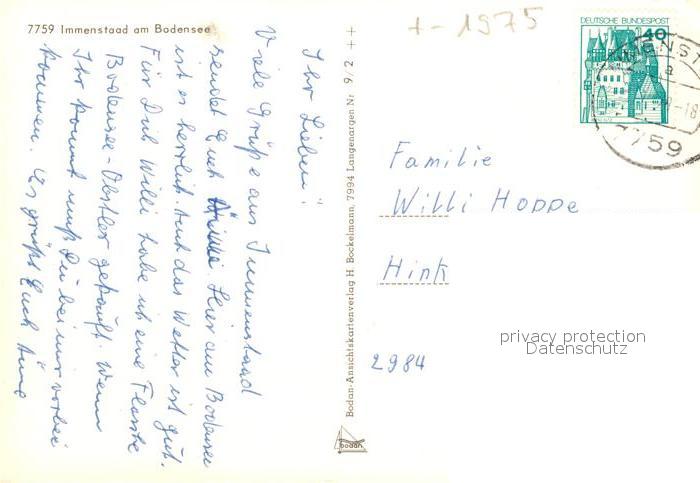 7759 Immenstaad am Bodensee
+-1975
Ihr Lieben!
Viele Grüße aus Immenstaad
sendet Euch Änne. Hier am Bodensee
ist es herrlich. Auch das Wetter ist gut.
Für Dich Willi habe ich eine Flasche
Bodensee-Obstler gekauft. Wenn
Ihr kommt mußt Du bei mir vorbei
kommen. Es grüßt Euch Änne
Bodan-Ansichtskartenverlag H. Bockelmann, 7994 Langenargen Nr 9/2 ++
bodan
DEUTSCHE BUNDESPOST
40
7759
Familie
Willi Hoppe
Hink
2984
privacy protection
Datenschutz